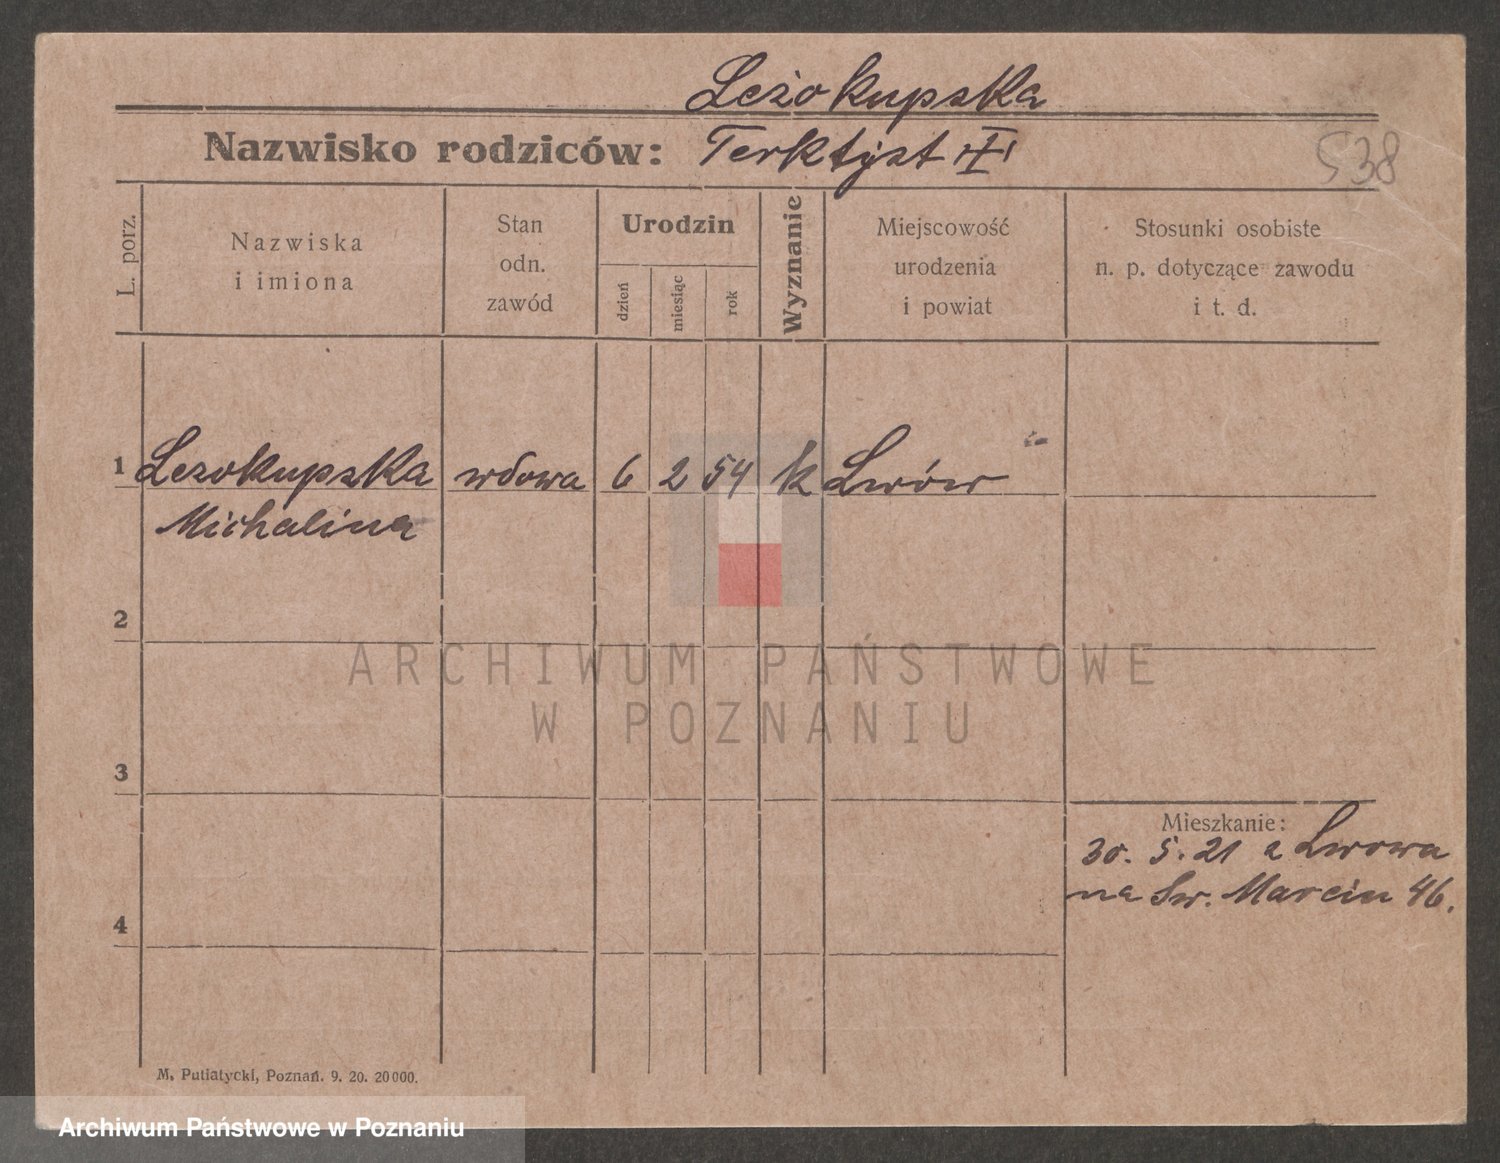 Leżokupska
Nazwisko rodziców: Terktyst
538
L. porz.
Nazwiska
i imiona
Stan
odn.
zawód
Urodzin
dzień
miesiąc
rok
Wyznanie
Miejscowość
urodzenia
i powiat
Stosunki osobiste
n. p. dotyczące zawodu
i t. d.
1 Lezokupska wdowa 6 2 54 k Lwów
Michalina
2
3
4
Mieszkanie:
30. 5. 21 z Lwowa
na Św. Marcin 46.
M. Putiatycki, Poznań. 9. 20. 20000.
ARCHIWUM PAŃSTWOWE
W POZNANIU
Archiwum Państwowe w Poznaniu